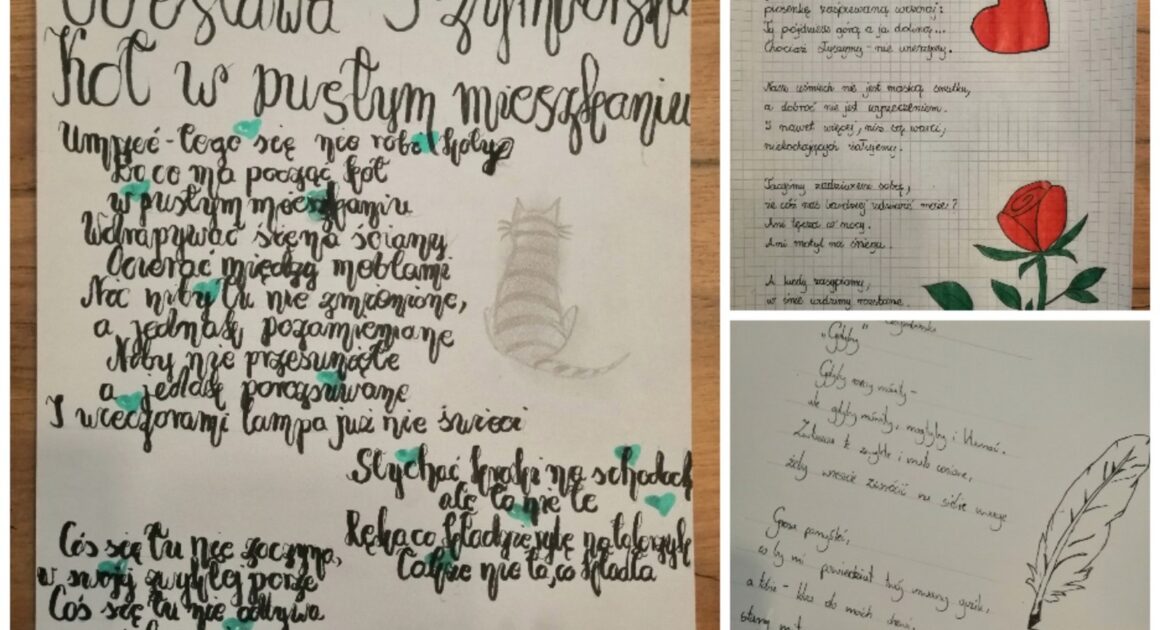 Wisława Szymborska
Kot w pustym mieszkaniu
Umrzeć - tego się nie robi kotu
Bo co ma począć kot
w pustym mieszkaniu
Wdrapywać się na ściany
Ocierać między meblami
Nic niby tu nie zmienione,
a jednak pozamieniane
Niby nie przesunięte
a jednak porozsuwane
I wieczorami lampa już nie świeci
Słychać kroki na schodach
ale to nie te
Ręka co kładzie rybę na talerzyk
Także nie ta, co kładła
Coś się tu nie zaczyna,
w swojej zwykłej porze
Coś się tu nie odbywa
piosenkę zaśpiewaną wczoraj:
Ty pójdziesz górą a ja doliną...
Chociaż słyszymy - nie wierzymy.
Nasz uśmiech nie jest maską smutku,
a dobroć nie jest wyrzeczeniem.
I nawet więcej, niż są warci,
niekochających żałujemy.
Tacyśmy zadziwieni sobą,
że cóż nas bardziej zdziwić może?
Ani tęcza w nocy.
Ani motyl na śniegu.
A kiedy zasypiamy,
w śnie widzimy rozstanie.
Szymborska
"Gdyby"
Gdyby rzeczy mówiły -
ale gdyby mówiły, mogłyby i kłamać.
Zwłaszcza te zwykłe i mało cenione,
żeby wreszcie zwrócić na siebie uwagę
Groza pomyśleć,
co by mi powiedział twój urwany guzik,
a tobie - klucz do moich drzwi,
stary